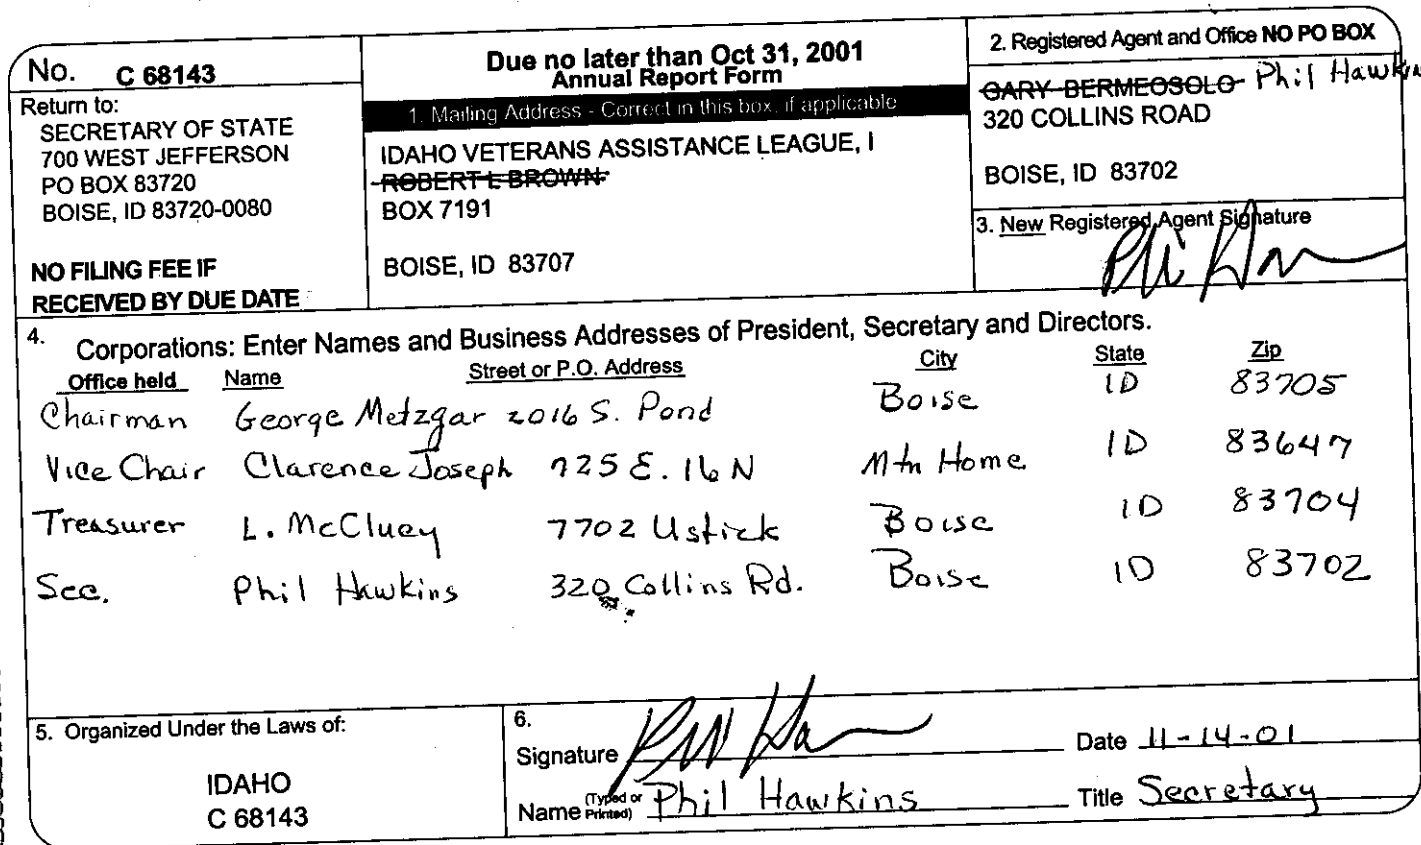 No. C 68143
Return to:
SECRETARY OF STATE
700 WEST JEFFERSON
PO BOX 83720
BOISE, ID 83720-0080
NO FILING FEE IF
RECEIVED BY DUE DATE
Due no later than Oct 31, 2001
Annual Report Form
1. Mailing Address - Correct in this box, if applicable
IDAHO VETERANS ASSISTANCE LEAGUE, I
ROBERT L BROWN
BOX 7191
BOISE, ID 83707
2. Registered Agent and Office NO PO BOX
GARY BERMEOSOLO Phil Hawkin
320 COLLINS ROAD
BOISE, ID 83702
3. New Registered Agent Signature
4. Corporations: Enter Names and Business Addresses of President, Secretary and Directors.
Office held Name Street or P.O. Address City State Zip
Chairman George Metzgar 2016 S. Pond Boise ID 83705
Vice Chair Clarence Joseph 725 E. 16 N Mtn Home ID 83647
Treasurer L. McCluey 7702 Ustick Boise ID 83704
Sec. Phil Hawkins 320 Collins Rd. Boise ID 83702
5. Organized Under the Laws of:
IDAHO
C 68143
6.
Signature Date 11-14-01
Name (Typed or Printed) Phil Hawkins Title Secretary